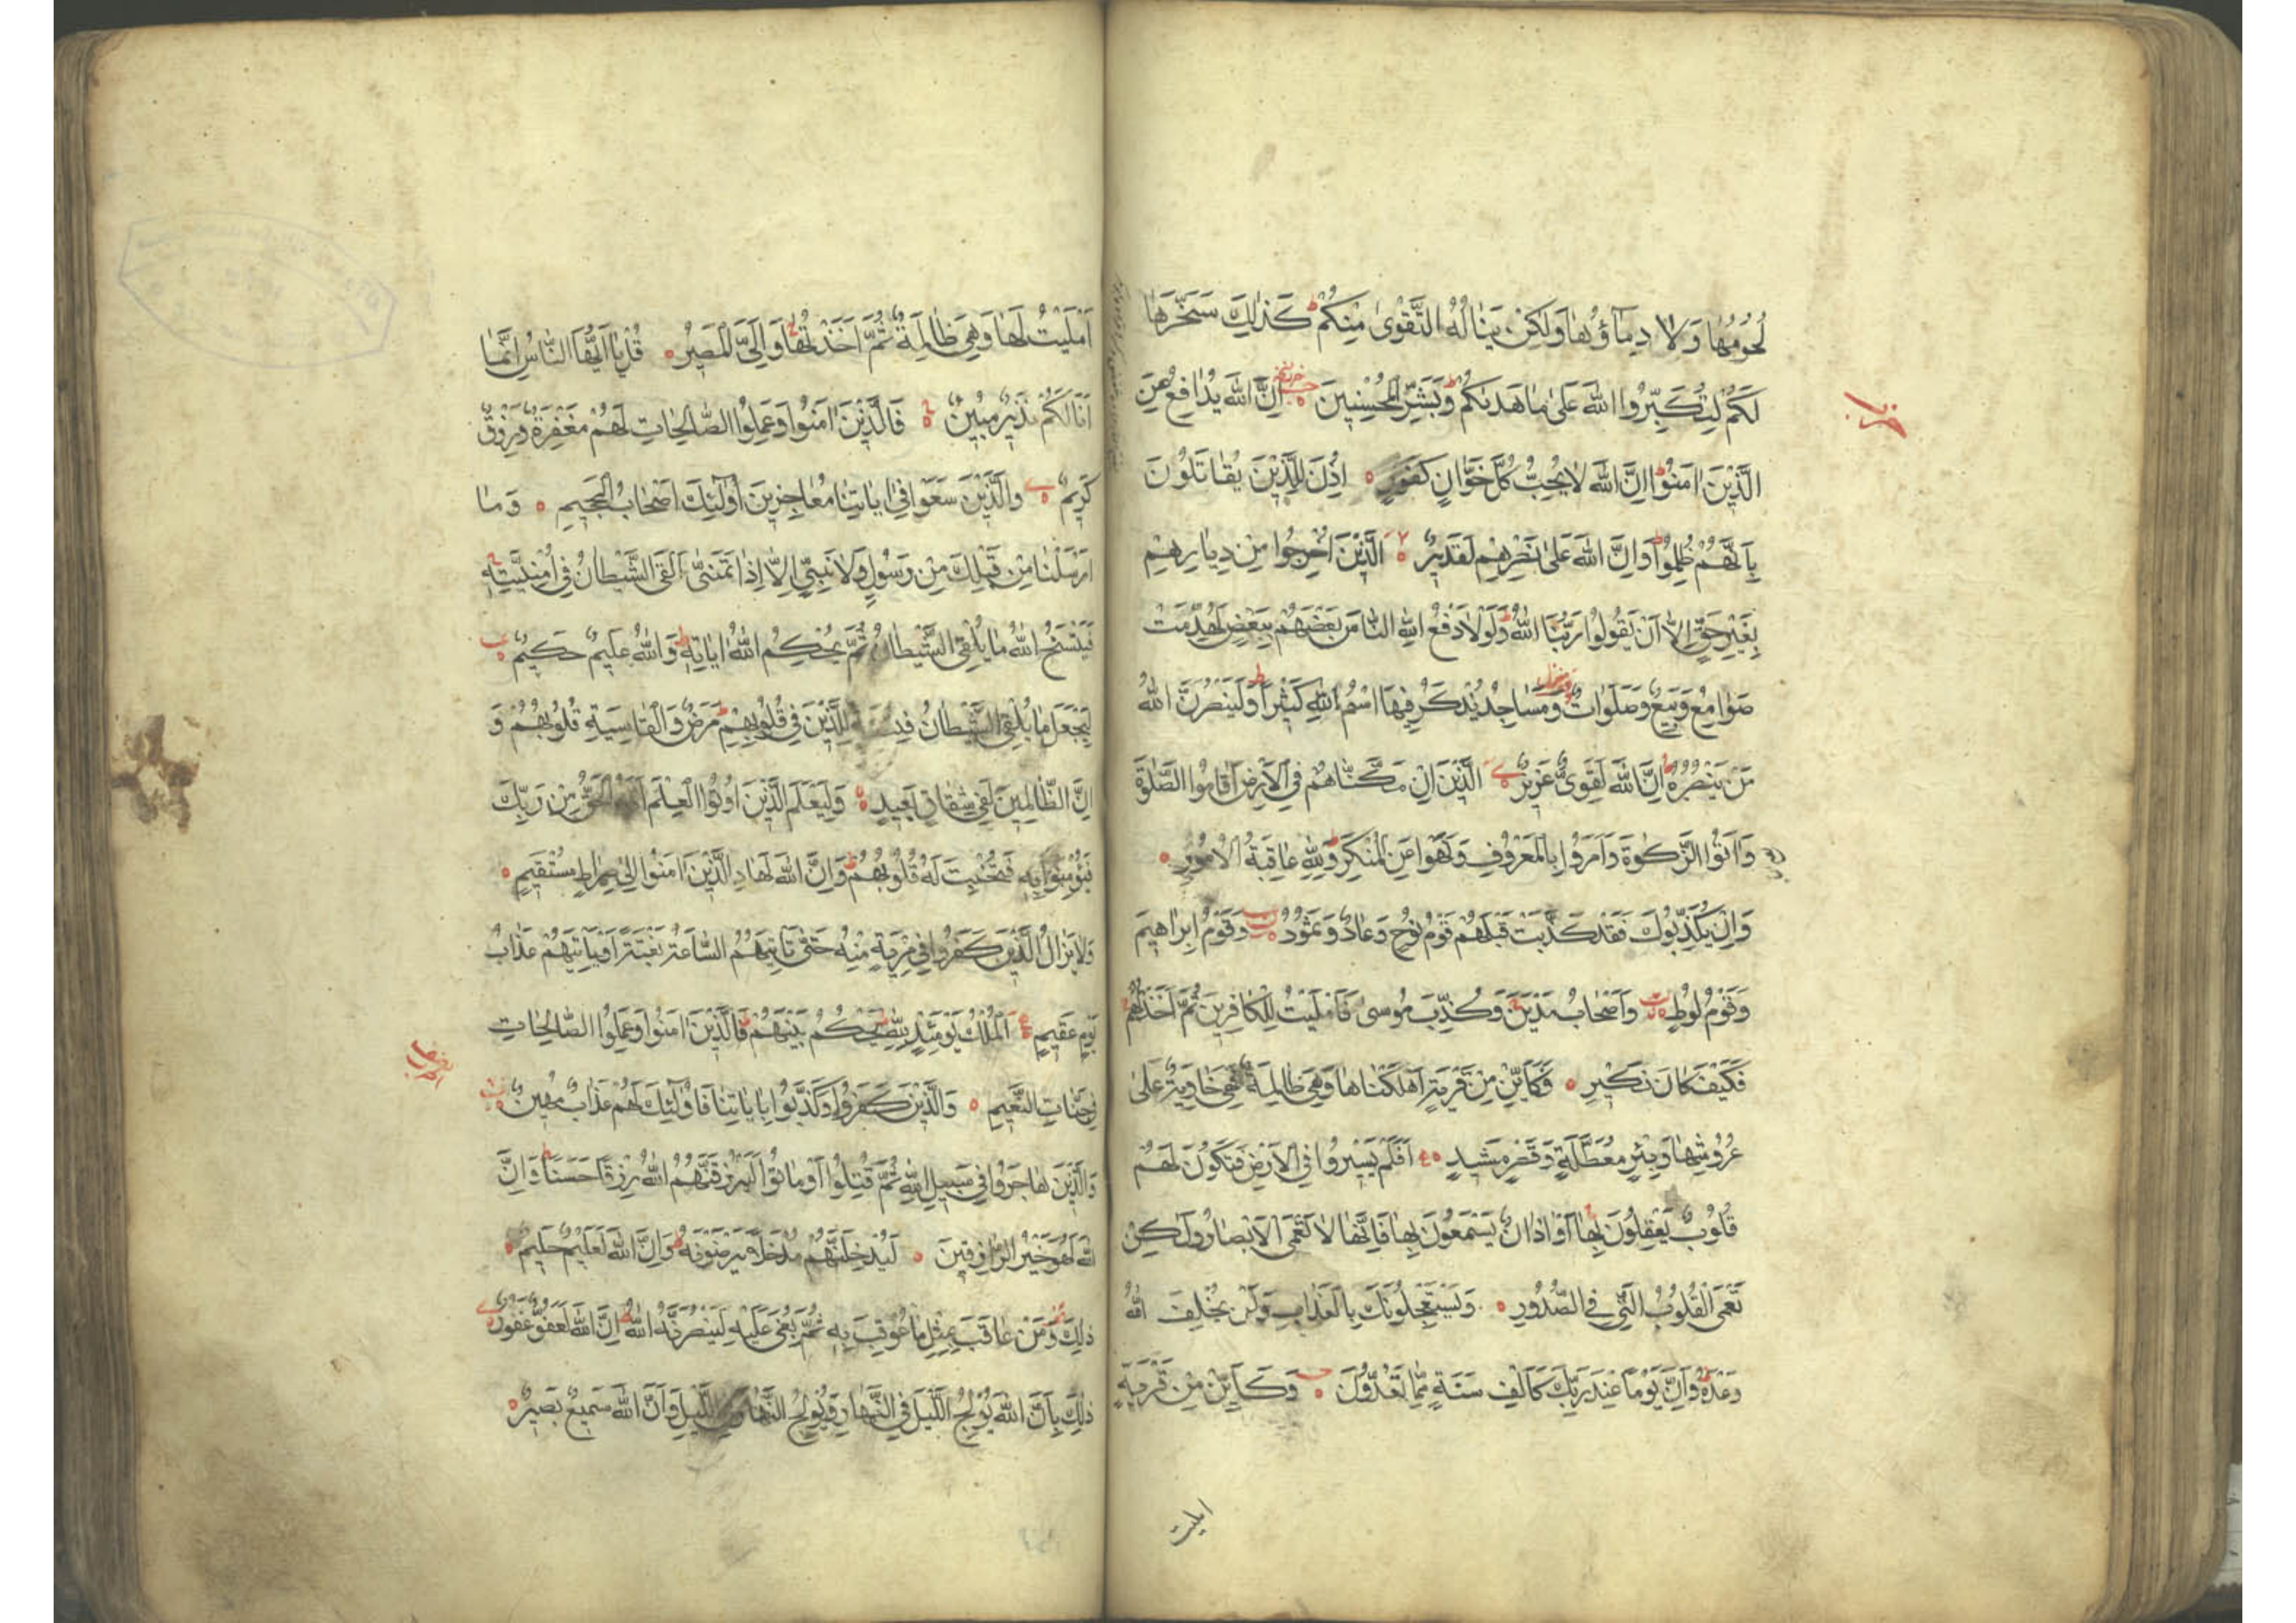 لُحُومُهَا وَلَا دِمَاؤُهَا وَلٰكِنْ يَنَالُهُ التَّقْوٰى مِنْكُمْ كَذٰلِكَ سَخَّرَهَا
لَكُمْ لِتُكَبِّرُوا اللّٰهَ عَلٰى مَا هَدٰيكُمْ وَبَشِّرِ الْمُحْسِنِينَ اِنَّ اللّٰهَ يُدَافِعُ عَنِ
حزب
الَّذِينَ اٰمَنُوا اِنَّ اللّٰهَ لَا يُحِبُّ كُلَّ خَوَّانٍ كَفُورٍ اُذِنَ لِلَّذِينَ يُقَاتَلُونَ
بِاَنَّهُمْ ظُلِمُوا وَاِنَّ اللّٰهَ عَلٰى نَصْرِهِمْ لَقَدِيرٌ اَلَّذِينَ اُخْرِجُوا مِنْ دِيَارِهِمْ
بِغَيْرِ حَقٍّ اِلَّا اَنْ يَقُولُوا رَبُّنَا اللّٰهُ وَلَوْلَا دَفْعُ اللّٰهِ النَّاسَ بَعْضَهُمْ بِبَعْضٍ لَهُدِّمَتْ
صَوَامِعُ وَبِيَعٌ وَصَلَوَاتٌ وَمَسَاجِدُ يُذْكَرُ فِيهَا اسْمُ اللّٰهِ كَثِيرًا وَلَيَنْصُرَنَّ اللّٰهُ
مَنْ يَنْصُرُهُ اِنَّ اللّٰهَ لَقَوِىٌّ عَزِيزٌ اَلَّذِينَ اِنْ مَكَّنَّاهُمْ فِي الْاَرْضِ اَقَامُوا الصَّلٰوةَ
وَاٰتَوُا الزَّكٰوةَ وَاَمَرُوا بِالْمَعْرُوفِ وَنَهَوْا عَنِ الْمُنْكَرِ وَلِلّٰهِ عَاقِبَةُ الْاُمُورِ
وَاِنْ يُكَذِّبُوكَ فَقَدْ كَذَّبَتْ قَبْلَهُمْ قَوْمُ نُوحٍ وَعَادٌ وَثَمُودُ وَقَوْمُ اِبْرَاهِيمَ
وَقَوْمُ لُوطٍ وَاَصْحَابُ مَدْيَنَ وَكُذِّبَ مُوسٰى فَاَمْلَيْتُ لِلْكَافِرِينَ ثُمَّ اَخَذْتُهُمْ
فَكَيْفَ كَانَ نَكِيرِ فَكَاَيِّنْ مِنْ قَرْيَةٍ اَهْلَكْنَاهَا وَهِيَ ظَالِمَةٌ فَهِيَ خَاوِيَةٌ عَلٰى
عُرُوشِهَا وَبِئْرٍ مُعَطَّلَةٍ وَقَصْرٍ مَشِيدٍ اَفَلَمْ يَسِيرُوا فِي الْاَرْضِ فَتَكُونَ لَهُمْ
قُلُوبٌ يَعْقِلُونَ بِهَا اَوْ اٰذَانٌ يَسْمَعُونَ بِهَا فَاِنَّهَا لَا تَعْمَى الْاَبْصَارُ وَلٰكِنْ
تَعْمَى الْقُلُوبُ الَّتِي فِي الصُّدُورِ وَيَسْتَعْجِلُونَكَ بِالْعَذَابِ وَلَنْ يُخْلِفَ اللّٰهُ
وَعْدَهُ وَاِنَّ يَوْمًا عِنْدَ رَبِّكَ كَاَلْفِ سَنَةٍ مِمَّا تَعُدُّونَ وَكَاَيِّنْ مِنْ قَرْيَةٍ
امليت
اَمْلَيْتُ لَهَا وَهِيَ ظَالِمَةٌ ثُمَّ اَخَذْتُهَا وَاِلَيَّ الْمَصِيرُ قُلْ يَا اَيُّهَا النَّاسُ اِنَّمَا
اَنَا لَكُمْ نَذِيرٌ مُبِينٌ فَالَّذِينَ اٰمَنُوا وَعَمِلُوا الصَّالِحَاتِ لَهُمْ مَغْفِرَةٌ وَرِزْقٌ
كَرِيمٌ وَالَّذِينَ سَعَوْا فِي اٰيَاتِنَا مُعَاجِزِينَ اُولٰئِكَ اَصْحَابُ الْجَحِيمِ وَمَا
اَرْسَلْنَا مِنْ قَبْلِكَ مِنْ رَسُولٍ وَلَا نَبِيٍّ اِلَّا اِذَا تَمَنّٰى اَلْقَى الشَّيْطَانُ فِي اُمْنِيَّتِهِ
فَيَنْسَخُ اللّٰهُ مَا يُلْقِي الشَّيْطَانُ ثُمَّ يُحْكِمُ اللّٰهُ اٰيَاتِهِ وَاللّٰهُ عَلِيمٌ حَكِيمٌ
لِيَجْعَلَ مَا يُلْقِي الشَّيْطَانُ فِتْنَةً لِلَّذِينَ فِي قُلُوبِهِمْ مَرَضٌ وَالْقَاسِيَةِ قُلُوبُهُمْ وَ
اِنَّ الظَّالِمِينَ لَفِي شِقَاقٍ بَعِيدٍ وَلِيَعْلَمَ الَّذِينَ اُوتُوا الْعِلْمَ اَنَّهُ الْحَقُّ مِنْ رَبِّكَ
فَيُؤْمِنُوا بِهِ فَتُخْبِتَ لَهُ قُلُوبُهُمْ وَاِنَّ اللّٰهَ لَهَادِ الَّذِينَ اٰمَنُوا اِلٰى صِرَاطٍ مُسْتَقِيمٍ
وَلَا يَزَالُ الَّذِينَ كَفَرُوا فِي مِرْيَةٍ مِنْهُ حَتّٰى تَاْتِيَهُمُ السَّاعَةُ بَغْتَةً اَوْ يَاْتِيَهُمْ عَذَابُ
يَوْمٍ عَقِيمٍ اَلْمُلْكُ يَوْمَئِذٍ لِلّٰهِ يَحْكُمُ بَيْنَهُمْ فَالَّذِينَ اٰمَنُوا وَعَمِلُوا الصَّالِحَاتِ
فِي جَنَّاتِ النَّعِيمِ وَالَّذِينَ كَفَرُوا وَكَذَّبُوا بِاٰيَاتِنَا فَاُولٰئِكَ لَهُمْ عَذَابٌ مُهِينٌ
وَالَّذِينَ هَاجَرُوا فِي سَبِيلِ اللّٰهِ ثُمَّ قُتِلُوا اَوْ مَاتُوا لَيَرْزُقَنَّهُمُ اللّٰهُ رِزْقًا حَسَنًا وَاِنَّ
اللّٰهَ لَهُوَ خَيْرُ الرَّازِقِينَ لَيُدْخِلَنَّهُمْ مُدْخَلًا يَرْضَوْنَهُ وَاِنَّ اللّٰهَ لَعَلِيمٌ حَلِيمٌ
ذٰلِكَ وَمَنْ عَاقَبَ بِمِثْلِ مَا عُوقِبَ بِهِ ثُمَّ بُغِيَ عَلَيْهِ لَيَنْصُرَنَّهُ اللّٰهُ اِنَّ اللّٰهَ لَعَفُوٌّ غَفُورٌ
ذٰلِكَ بِاَنَّ اللّٰهَ يُولِجُ اللَّيْلَ فِي النَّهَارِ وَيُولِجُ النَّهَارَ فِي اللَّيْلِ وَاَنَّ اللّٰهَ سَمِيعٌ بَصِيرٌ